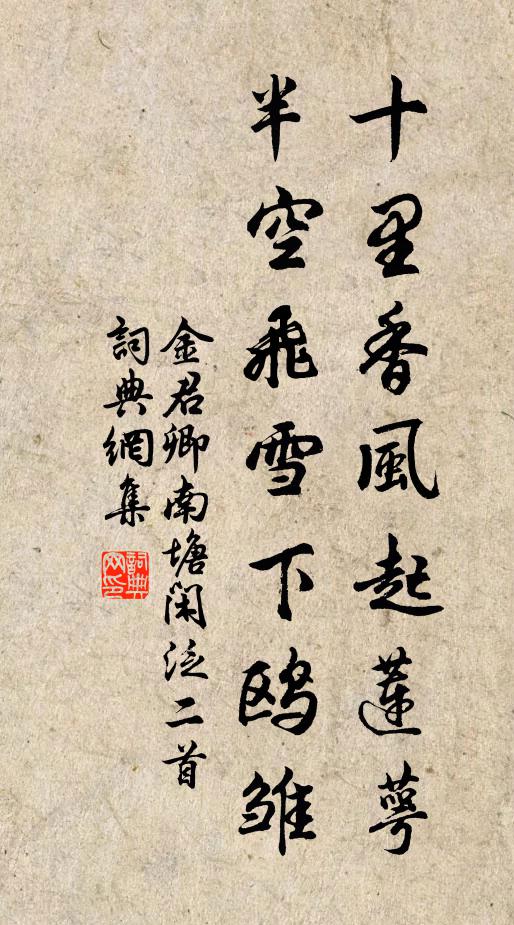 十里香風起蓮萼
半空飛雪下鸥雏
金君卿南塘闲泛二首
詞典網集
詞典网印